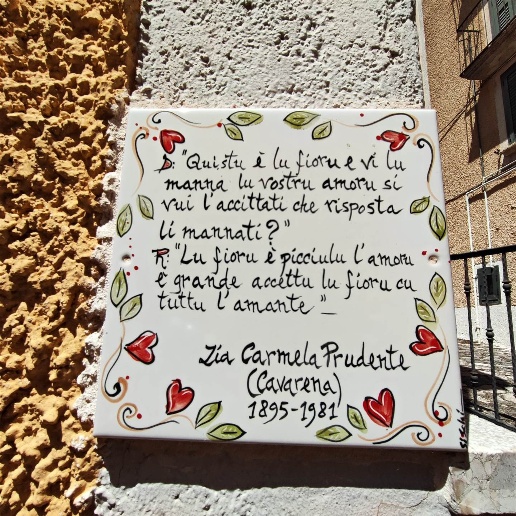 D: "Quistu è lu fioru e vi lu
manna lu vostru amoru si
vui l'accittati che risposta
li mannati?"
R: "Lu fioru è picciulu l'amoru
è grande accettu lu fioru cu
tuttu l'amante"_
Zia Carmela Prudente
(Cavarena)
1895-1981